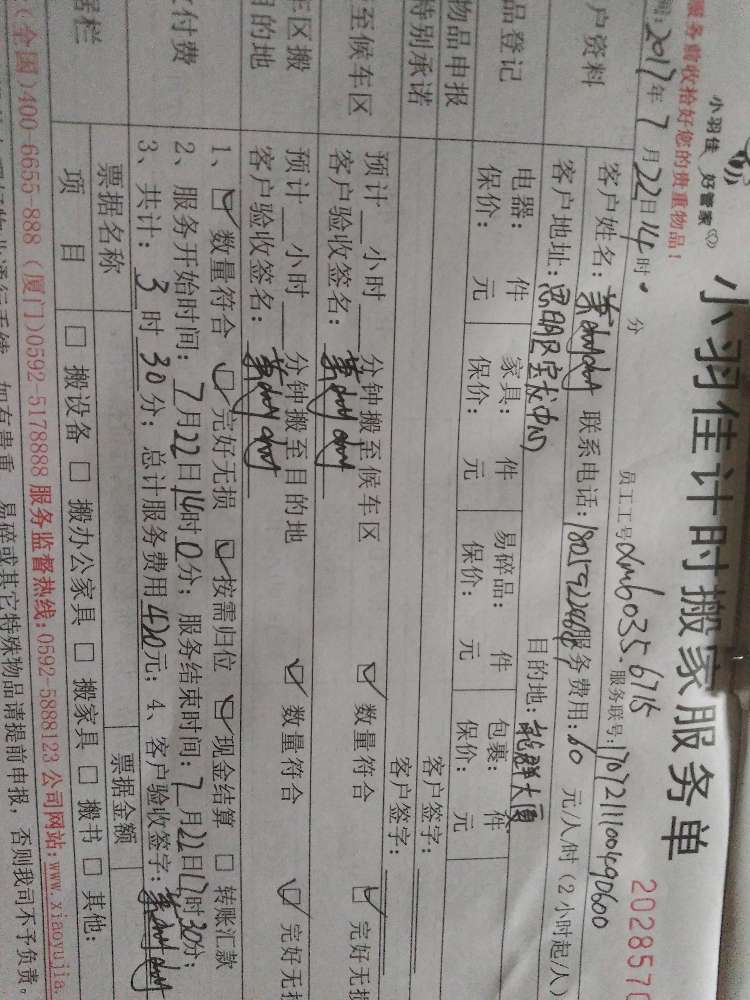 服务前收拾好您的贵重物品！
小羽佳 好管家
小羽佳计时搬家服务单
2028570
间：2017年7月22日14时 分
员工工号xmb6035 6715
服务联号：170721110049060
户资料
客户姓名： 联系电话： 服务费用：60元/人/时（2小时起/人）
客户地址：思明区宝龙中心 目的地：龙胜大厦
品登记
电器： 件 家具： 件 易碎品： 件 包裹： 件
保价： 元 保价： 元 保价： 元 保价： 元
物品申报 客户签字：
特别承诺 客户签字：
至候车区
预计 小时 分钟搬至候车区 数量符合 完好无损
客户验收签名：
车区搬
目的地
预计 小时 分钟搬至目的地 数量符合 完好无损
客户验收签名：
付费
1、 数量符合 完好无损 按需归位 现金结算 转账汇款
2、服务开始时间：7月22日14时0分；服务结束时间：7月22日17时30分；
3、共计：3时30分；总计服务费用420元；4、客户验收签字：
据栏
票据名称 票据金额
项 目 搬设备 搬办公家具 搬家具 搬书 其他：
（全国）400-6655-888（厦门）0592-5178888 服务监督热线：0592-5888123 公司网站：www.xiaoyujia.
如有贵重、易碎或其它特殊物品请提前申报，否则我司不予负责。